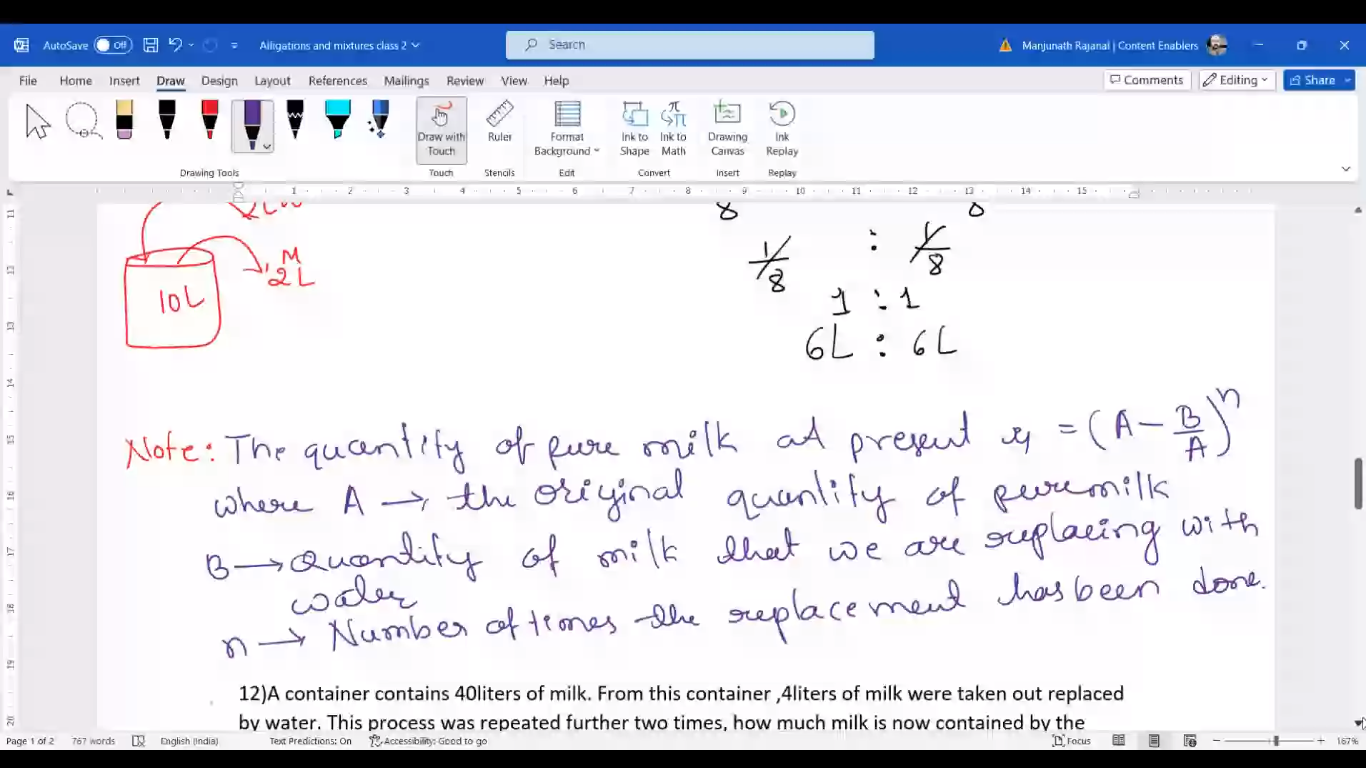 AutoSave Off Alligations and mixtures class 2 Search Manjunath Rajanal | Content Enablers
File Home Insert Draw Design Layout References Mailings Review View Help Comments Editing Share
Draw with Touch Ruler Format Background Ink to Shape Ink to Math Drawing Canvas Ink Replay
Drawing Tools Touch Stencils Edit Convert Insert Replay
1 2 3 4 5 6 7 8 9 10 11 12 13 14 15
8 8
M
2L
10L
1/8 : 1/8
1 : 1
6L : 6L
Note: The quantity of pure milk at present is = (A - B/A)^n
where A → the original quantity of pure milk
B → Quantity of milk that we are replacing with
water
n → Number of times the replacement has been done.
12)A container contains 40liters of milk. From this container ,4liters of milk were taken out replaced
by water. This process was repeated further two times, how much milk is now contained by the
Page 1 of 2 767 words English (India) Text Predictions: On Accessibility: Good to go Focus 167%